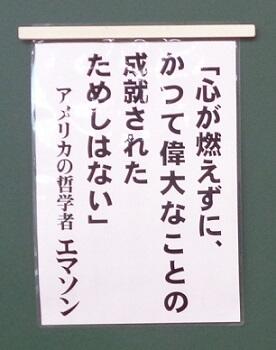 「心が燃えずに、
かつて偉大なことの
成就された
ためしはない」
アメリカの哲学者 エマソン